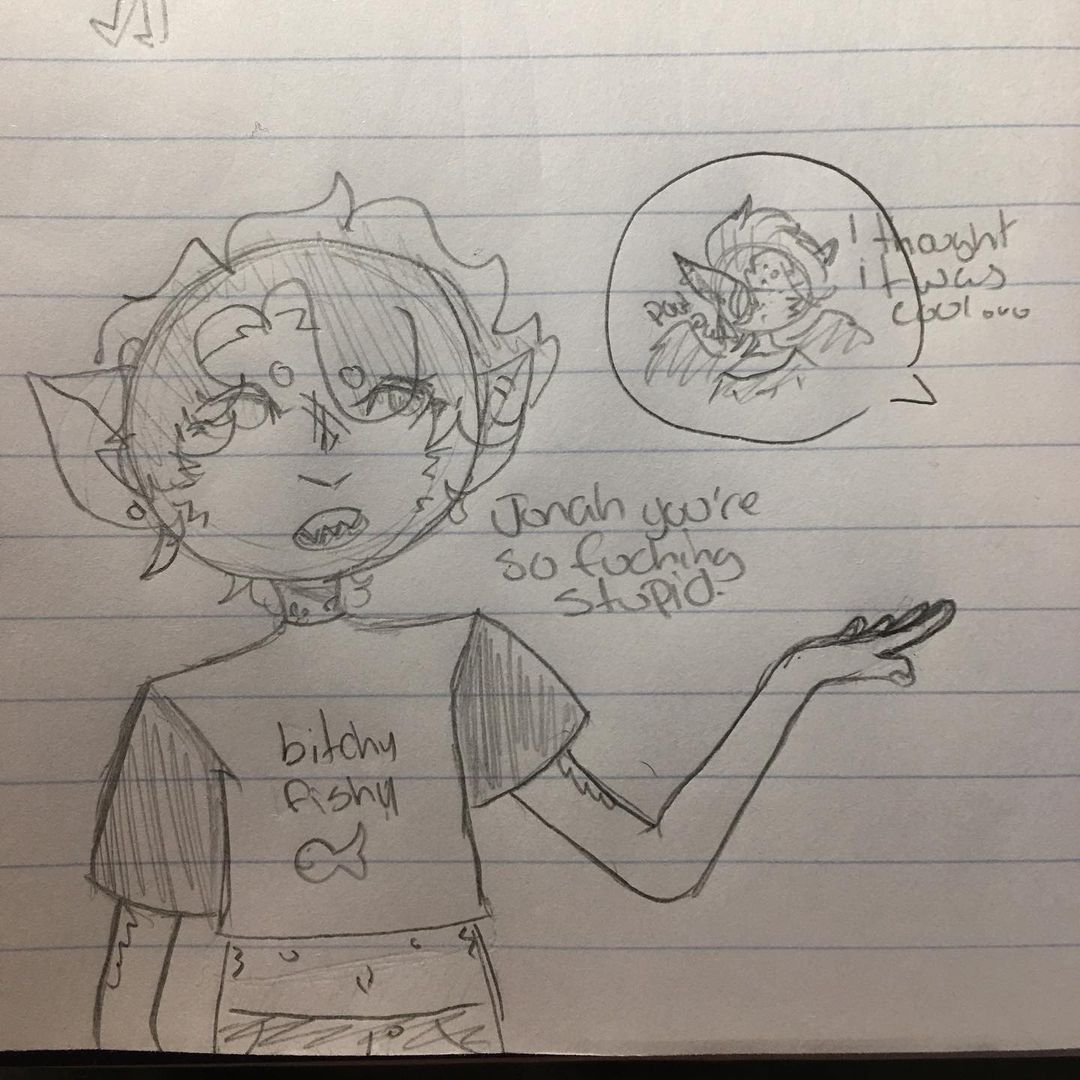 I thought
it was
cool ovo
Jonah you're
so fucking
stupid.
bitchy
fishy